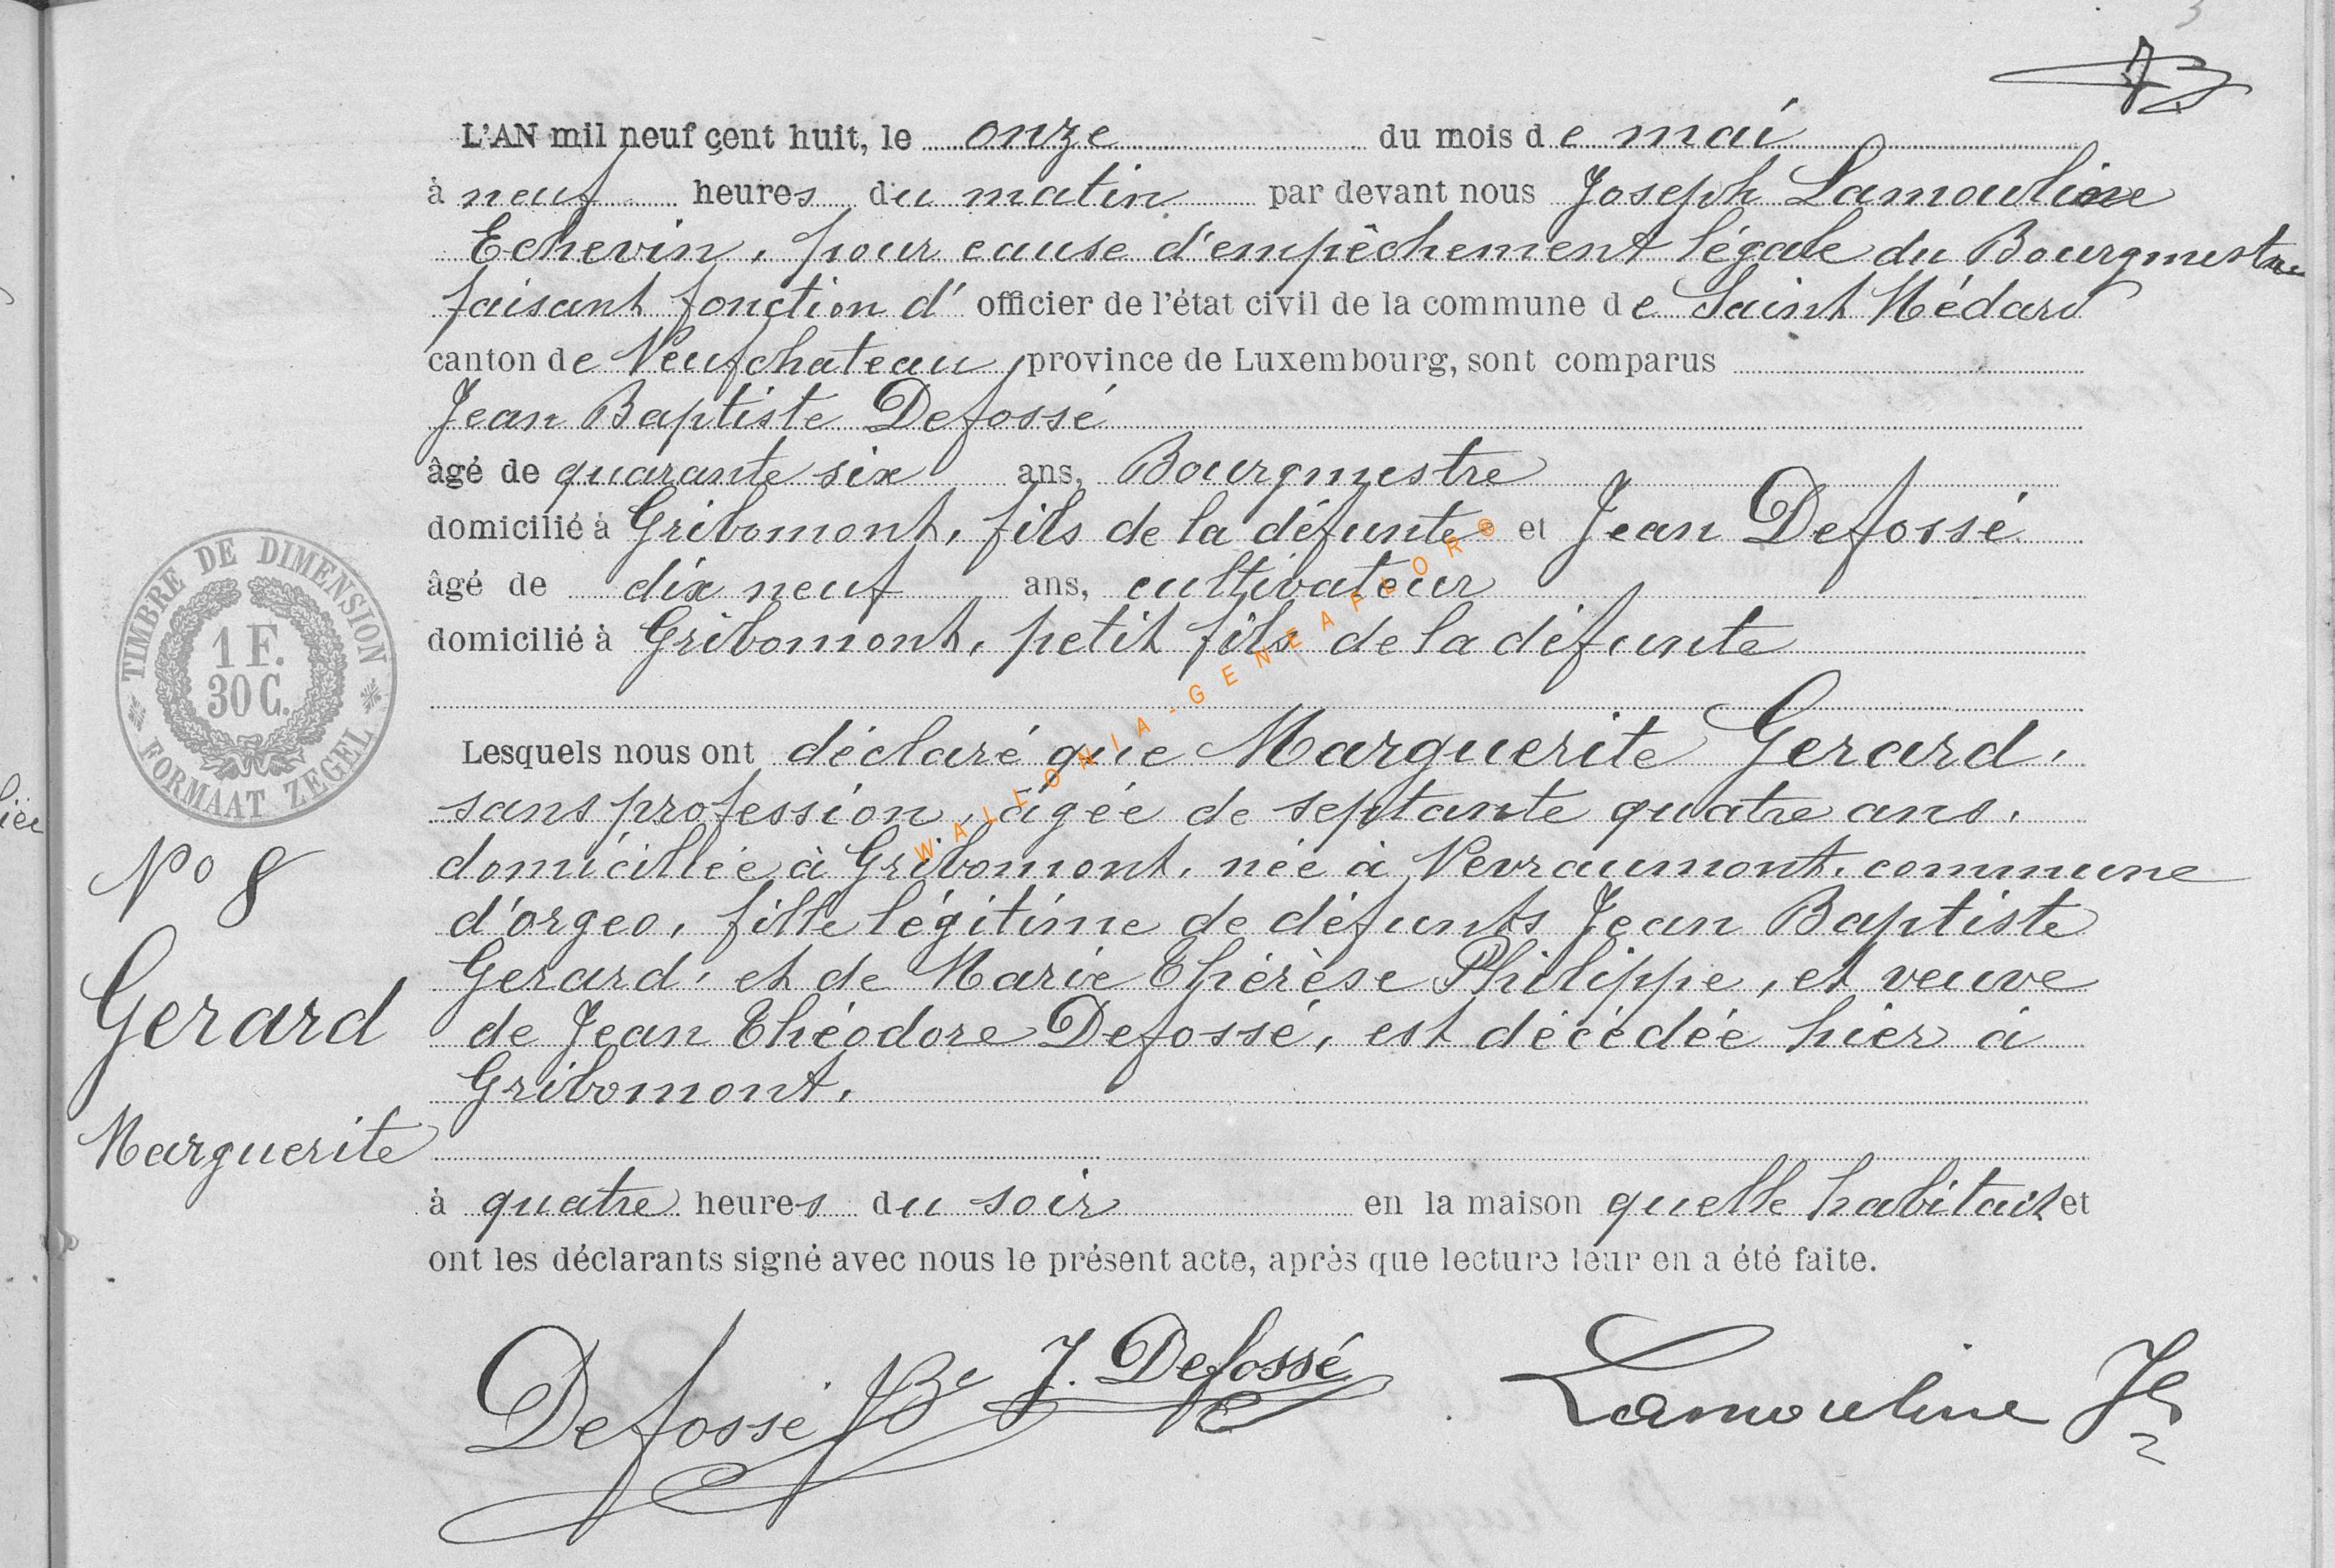 L'AN mil neuf cent huit, le onze du mois de mai
à neuf heures du matin par devant nous Joseph Lamouline
Echevin, pour cause d'empêchement légale du Bourgmestre
faisant fonction d' officier de l'état civil de la commune de Saint Médard
canton de Neufchateau, province de Luxembourg, sont comparus
Jean Baptiste Defossé
âgé de quarante six ans, Bourgmestre
domicilié à Gribomont, fils de la défunte et Jean Defossé
âgé de dix neuf ans, cultivateur
domicilié à Gribomont, petit fils de la défunte
Lesquels nous ont déclaré que Marguerite Gerard,
sans profession, âgée de septante quatre ans,
domicillée à Gribomont, née à Nevraumont, commune
d'orgeo, fille légitime de défunts Jean Baptiste
Gerard, et de Marie Thérèse Philippe, et veuve
de Jean Théodore Defossé, est décédée hier à
Gribomont,
à quatre heures du soir en la maison quelle habitait et
ont les déclarants signé avec nous le présent acte, après que lecture leur en a été faite.
Defossé JBe J. Defossé Lamouline Jh
TIMBRE DE DIMENSION
1 F.
30 C.
FORMAAT ZEGEL
No 8
Gerard
Marguerite
WALLONIA-GENEAFLOR®